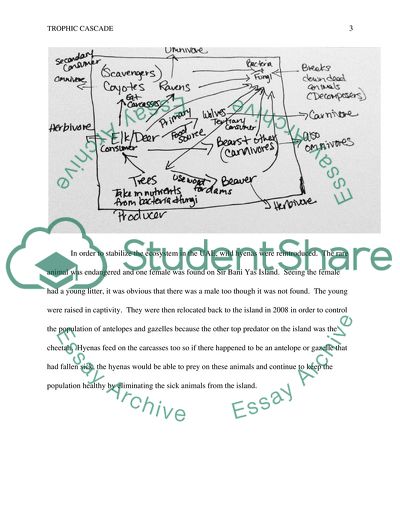 TROPHIC CASCADE 3
Omnivore
Secondary
Consumer
Omnivore
(Scavengers)
Coyotes Ravens
Eat
Carcasses
Bacteria
Fungi
Breaks
down dead
animals
(Decomposers)
Primary
Food
Source
Wolves
Tertiary
Consumer
Carnivore
Herbivore
Elk/Deer
Consumer
Bears + other
(Carnivores)
also
omnivores
Trees
Take in nutrients
from bacteria & fungi
Use wood
for dams
Beaver
Herbivore
Producer
In order to stabilize the ecosystem in the UAE, wild hyenas were reintroduced. The rare
animal was endangered and one female was found on Sir Bani Yas Island. Seeing the female
had a young litter, it was obvious that there was a male too though it was not found. The young
were raised in captivity. They were then relocated back to the island in 2008 in order to control
the population of antelopes and gazelles because the other top predator on the island was the
cheetah. Hyenas feed on the carcasses too so if there happened to be an antelope or gazelle that
had fallen sick, the hyenas would be able to prey on these animals and continue to keep the
population healthy by eliminating the sick animals from the island.
StudentShare
Essay Archive
Essay Archive
Essay Archive
Essay Archive
Essay Archive
Essay Archive